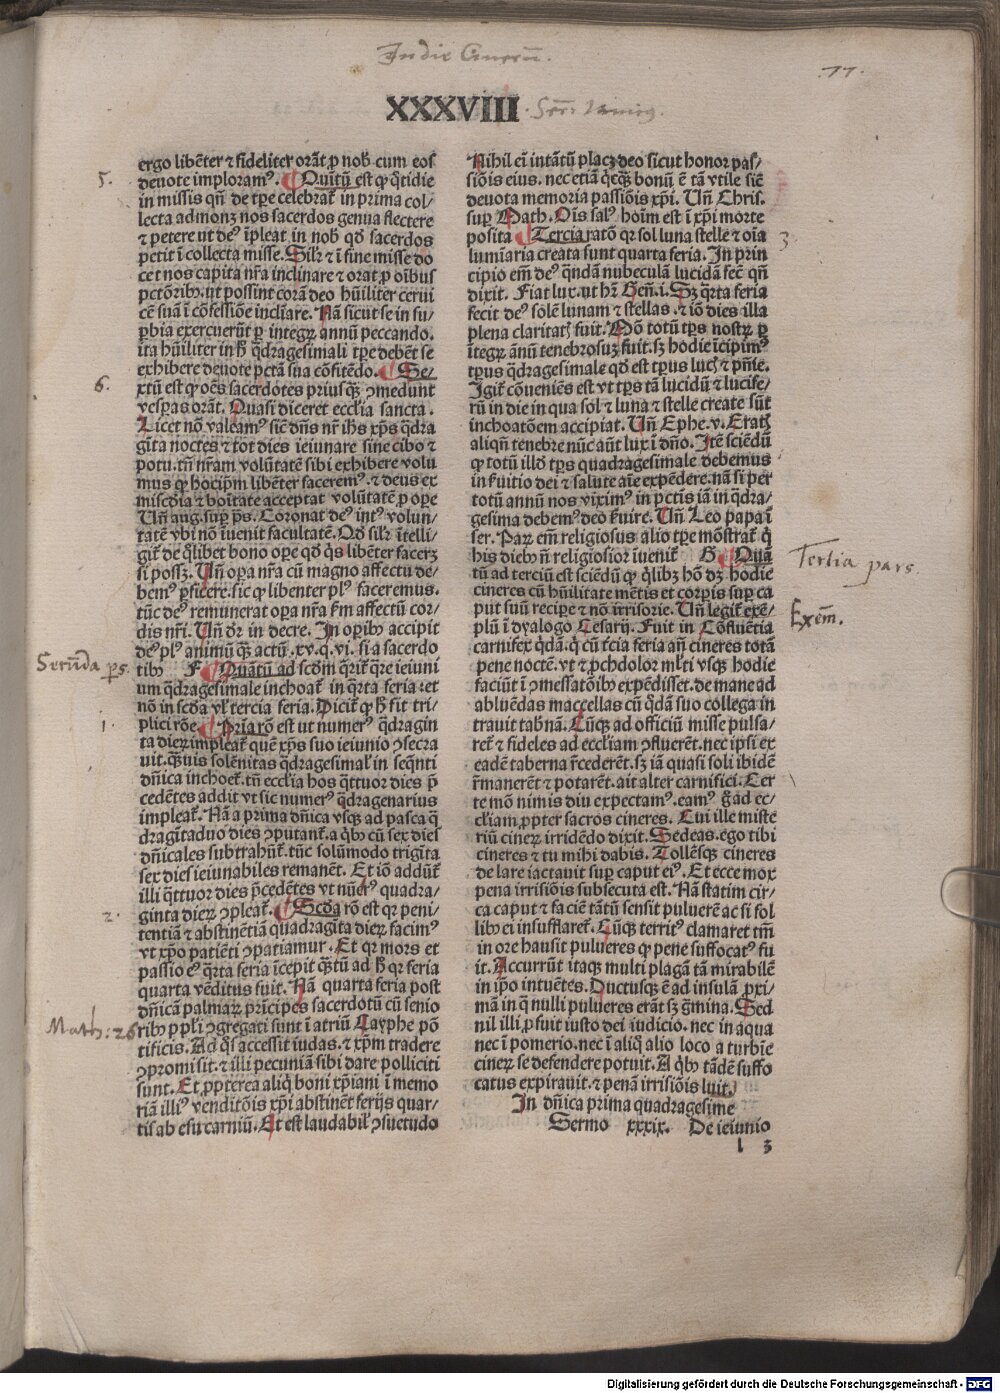 In die Cinerū.
.77.
XXXVIII
ergo libēter ⁊ fideliter orāt ꝓ nob̄ cum eos
5.
deuote imploramꝰ. ¶ Quītū est ꝙ q̄tidie
in missis qn̄ de tp̄e celebraṫ in prima col⸗
lecta admonꝫ nos sacerdos genua flectere
⁊ petere ut deꝰ īpleat in nob̄ qd̄ sacerdos
petit ī collecta misse. Silr̄ ⁊ ī fine misse do
cet nos capita nr̄a inclinare ⁊ orat ꝓ oībus
pctōribꝰ. ut possint corā deo hūiliter cerui
cē suā ī cōfessiōe inclīare. Nā sicut se in su⸗
ꝑbia exercuerūt ꝑ integꝝ annū peccando.
ita hūiliter in h̄ q̄dragesimali tp̄e debēt se
exhibere deuote pctā sua cōfitēdo. ¶ Se⸗
6.
xtū est ꝙ oēs sacerdotes priusq̄ꝫ ꝯmedunt
vesꝑas orāt. Quasi diceret eccl̄ia sancta.
Licet nō valeamꝰ sic dn̄s nr̄ ih̄s xp̄s q̄dra
gīta noctes ⁊ tot dies ieiunare sine cibo ⁊
potu. tn̄ nr̄am volūtatē sibi exhibere volu
mus ꝙ hoc ip̄m libēter faceremꝰ. ⁊ deus ex
miscd̄ia ⁊ boītate acceptat volūtatē ꝓ oꝑe
Vn̄ aug. suꝑ ps̄. Coronat deꝰ intꝰ volun⸗
tatē vbi nō īuenit facultatē. Qd̄ silr̄ ītelli⸗
giṫ de q̄libet bono oꝑe qd̄ qs̄ libēter facerꝫ
si possꝫ. Vn̄ oꝑa nr̄a cū magno affectu de⸗
bemꝰ ꝑficere. sic ꝙ libenter plꝰ faceremus.
tūc deꝰ remunerat oꝑa nr̄a ẜm affectū cor⸗
dis nr̄i. Vn̄ dr̄ in decre. In oꝑibꝰ accipit
deꝰ plꝰ animū q̄ꝫ actū. xv. q. vi. si a sacerdo
Secūda ps.
tibꝰ F ¶ Quātū ad scd̄m q̄riṫ q̄re ieiuni
um q̄dragesimale inchoaṫ in q̄rta feria ⁊ et
nō in scd̄a vl̓ tercia feria. Diciṫ ꝙ h̄ fit tri⸗
1.
plici rōe. ¶ Pria rō est ut numerꝰ q̄dragin
ta dieꝝ impleaṫ quē xp̄s suo ieiunio ꝯsecra
uit. q̄ꝫuis solēnitas q̄dragesimal̓ in seq̄nti
dn̄ica inchoeṫ. tn̄ eccl̄ia hos q̄ttuor dies p̄
cedētes addit vt sic numerꝰ q̄dragenarius
impleaṫ. Nā a prima dn̄ica vsqꝫ ad pasca q̄
dragītaduo dies ꝯputanṫ. a q̄bꝰ cū sex dies
dn̄icales subtrahūṫ. tūc solūmodo trigīta
sex dies ieiunabiles remanēt. Et iō addūṫ
illi q̄ttuor dies p̄cedētes vt nūerꝰ quadra⸗
2.
ginta dieꝝ ꝯpleaṫ. ¶ Scd̄a rō est qꝛ peni⸗
tentiā ⁊ abstinētiā quadragīta dieꝝ facimꝰ
vt xp̄o patiēti ꝯpatiamur. Et qꝛ mors et
passio eꝰ q̄rta feria īcepit q̄ꝫtū ad h̄ qꝛ feria
quarta vēditus fuit. Nā quarta feria post
dn̄icā palmaꝝ prīcipes sacerdotū cū senio
Math: 26
ribꝰ ꝓpl̄i ꝯgregati sunt ī atriū Cayphe pō
tificis. Ad q̄s accessit iudas. ⁊ xp̄m tradere
ꝯpromisit. ⁊ illi pecuniā sibi dare polliciti
sunt. Et ꝓpterea aliq̄ boni xp̄iani ī memo
riā illiꝰ venditōis xp̄i abstinēt ferijs quar⸗
tis ab esu carniū. Et est laudabil̓ ꝯsuetudo
Nihil eī intātū placꝫ deo sicut honor pas⸗
siōis eius. nec etiā q̄cqꝫ bonū ē tā vtile sic
deuota memoria passiōis xp̄i. Vn̄ Chris.
suꝑ Math. Oīs salꝰ hoīm est ī xp̄i morte
posita ¶ Tercia ratō qꝛ sol luna stelle ⁊ oīa
3.
lumīaria creata sunt quarta feria. In prin
cipio em̄ deꝰ q̄ndā nubeculā lucidā fecit qn̄
dixit. Fiat lux. ut hr̄ Gen̄. i. Sꝫ q̄rta feria
fecit deꝰ solē lunam ⁊ stellas. ⁊ iō dies illa
plena claritatꝭ fuit. Mō totū tp̄s nostꝝ ꝑ
ītegꝝ ānū tenebrosuꝫ fuit. sꝫ hodie īcipimꝰ
tp̄us q̄dragesimale qd̄ est tp̄us lucꝭ ⁊ pn̄ie.
Igiṫ cōueniēs est vt tp̄s tā lucidū ⁊ lucife⸗
rū in die in qua sol ⁊ luna ⁊ stelle create sūt
inchoatōem accipiat. Vn̄ Ephe. v. Eratꝭ
aliqn̄ tenebre nūc aūt lux ī dn̄o. Itē sciēdū
ꝙ totū illd̄ tp̄s quadragesimale debemus
in ẜuitio dei ⁊ salute aīe expēdere. nā si per
totū annū nos viximꝰ in pctis iā in q̄dra⸗
gesima debemꝰ deo ẜuire. Vn̄ Leo papa ī
ser. Paꝝ em̄ religiosus alio tp̄e mōstraṫ q̄
his diebꝰ n̄ religiosior īueniṫ G ¶ Quā
Tertia pars.
tū ad terciū est sciēdū ꝙ q̄libꝫ hō dꝫ hodie
cineres cū hūilitate mētis et corꝑis suꝑ ca
Exem̄.
put suū recipe ⁊ nō irrisorie. Vn̄ legiṫ exē⸗
plū ī dyalogo Cesarij. Fuit in Cōfluētia
carnifex q̄dā. q̄ cū ťcia feria an̄ cineres totā
pene noctē. vt ⁊ ꝓchdolor ml̓ti vsqꝫ hodie
faciūt ī ꝯmessatōibꝰ expēdisset. de mane ad
abluēdas maccellas cū q̄dā suo collega in
trauit tabn̄ā. Cūqꝫ ad officiū misse pulsa⸗
reṫ ⁊ fideles ad eccl̄iam ꝯfluerēt. nec ipsi ex
eadē taberna r̄cederēt. sꝫ iā quasi soli ibidē
r̄manerēt ⁊ potarēt. ait alter carnifici. Cer
te mō nimis diu expectamꝰ. eamꝰ ḡ ad ec⸗
cl̄iam ꝓpter sacros cineres. Cui ille miste
riū cineꝝ irridēdo dixit. Sedeas. ego tibi
cineres ⁊ tu mihi dabis. Tollēsqꝫ cineres
de lare iactauit suꝑ caput eiꝰ. Et ecce mox
pena irrisiōis subsecuta est. Nā statim cir⸗
ca caput ⁊ faciē tātū sensit puluerē ac si fol
libꝰ ei insufflareṫ. Cūqꝫ territꝰ clamaret tm̄
in ore hausit pulueres ꝙ pene suffocatꝰ fu
it. Accurrūt itaqꝫ multi plagā tā mirabilē
in ip̄o intuētes. Ductusqꝫ ē ad insulā ꝓxi⸗
mā in q̄ nulli pulueres erāt sꝫ g̓mina. Sed
nil illi ꝓfuit iusto dei iudicio. nec in aqua
nec ī pomerio. nec ī aliq̄ alio loco a turbīe
cineꝝ se defendere potuit. A q̄bꝰ tādē suffo
catus expirauit. ⁊ penā irrisiōis luit.
In dn̄ica prima quadragesime
Sermo xxxix. De ieiunio
l 3
Digitalisierung gefördert durch die Deutsche Forschungsgemeinschaft - DFG